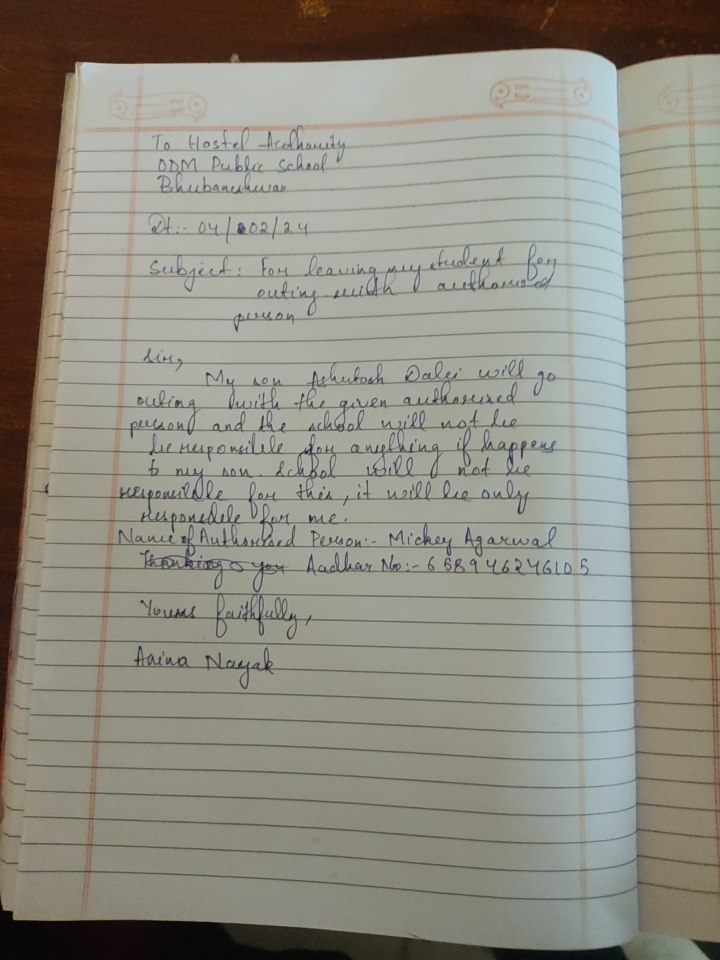 To Hostel Authority
ODM Public School
Bhubaneshwar
Dt:- 04/02/24
Subject: For leaving my student for
outing with authorised
person
Sir,
My son Ashutosh Dalei will go
outing with the given authorised
person and the school will not be
be responsible for anything if happens
to my son. School will not be
responsible for this, it will be only
responsible for me.
Name of Authorised Person:- Mickey Agarwal
Thanking you Aadhar No:- 658946246105
Yours faithfully,
Nayak